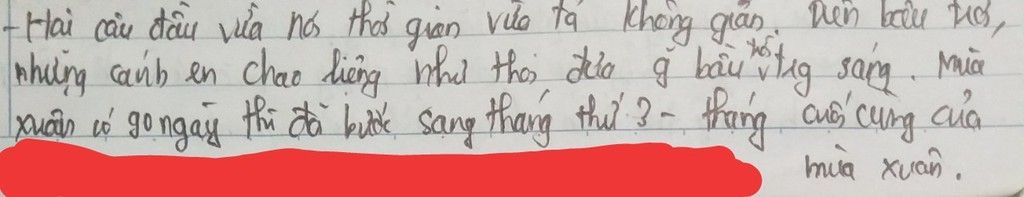 - Hai câu đầu vừa nó thời gian vừa tả không gian. Trên bầu trời,
những cánh én chao liệng như thoi đưa g bầu trời sáng. Mùa
xuân có 90 ngày thì đã bước sang tháng thứ 3 - tháng cuối cùng của
mùa xuân.